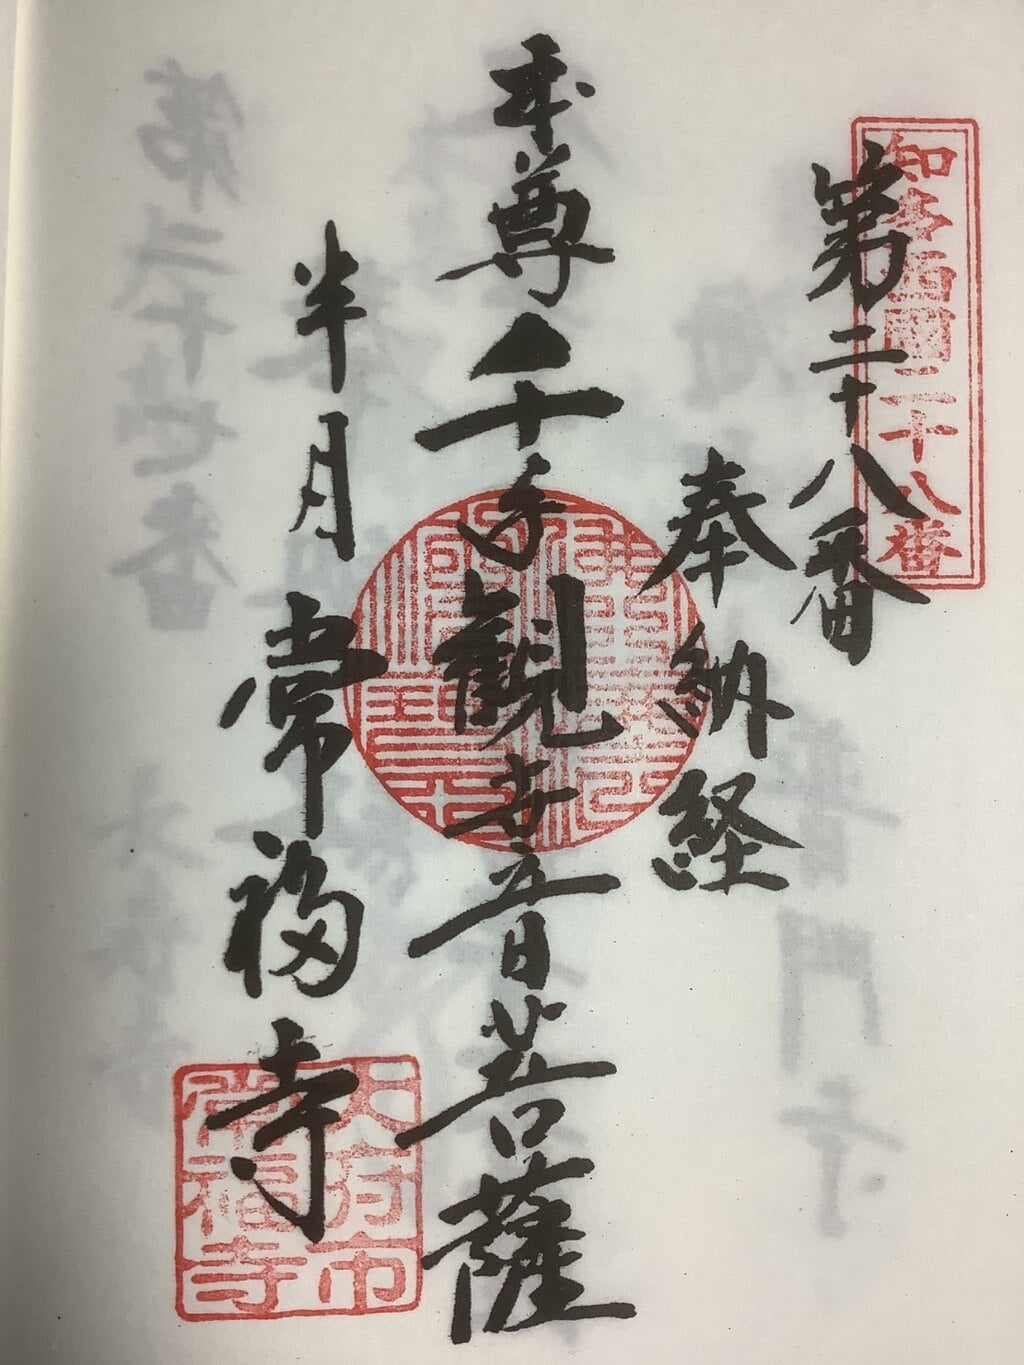 知多西國二十八番
第二十八番
奉納経
本尊千手観世音菩薩
半月 常福寺
大府市
常福寺